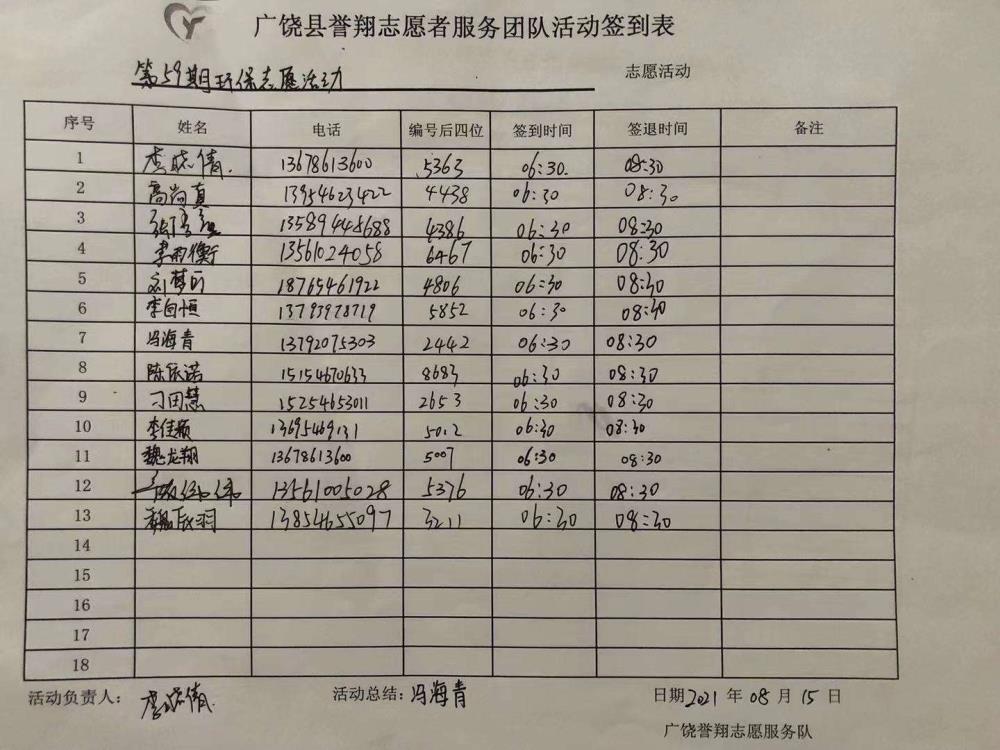 广饶县誉翔志愿者服务团队活动签到表
第59期环保志愿活动 志愿活动
序号 姓名 电话 编号后四位 签到时间 签退时间 备注
1 李晓倩 13678613600 5363 06:30 08:30
2 高尚真 13954623422 4438 06:30 08:30
3 13589448688 4386 06:30 08:30
4 李雨衡 13561024058 6467 06:30 08:30
5 18765461922 4806 06:30 08:30
6 李自恒 13793978719 5852 06:30 08:30
7 冯海青 13792075303 2442 06:30 08:30
8 陈依诺 15154670633 8683 06:30 08:30
9 刁田慧 15254653011 2653 06:30 08:30
10 李佳颖 13695469131 5012 06:30 08:30
11 魏龙翔 13678613600 5007 06:30 08:30
12 13561005028 5376 06:30 08:30
13 13854655097 3211 06:30 08:30
14
15
16
17
18
活动负责人： 李晓倩 活动总结：冯海青 日期2021年08月15日
广饶誉翔志愿服务队